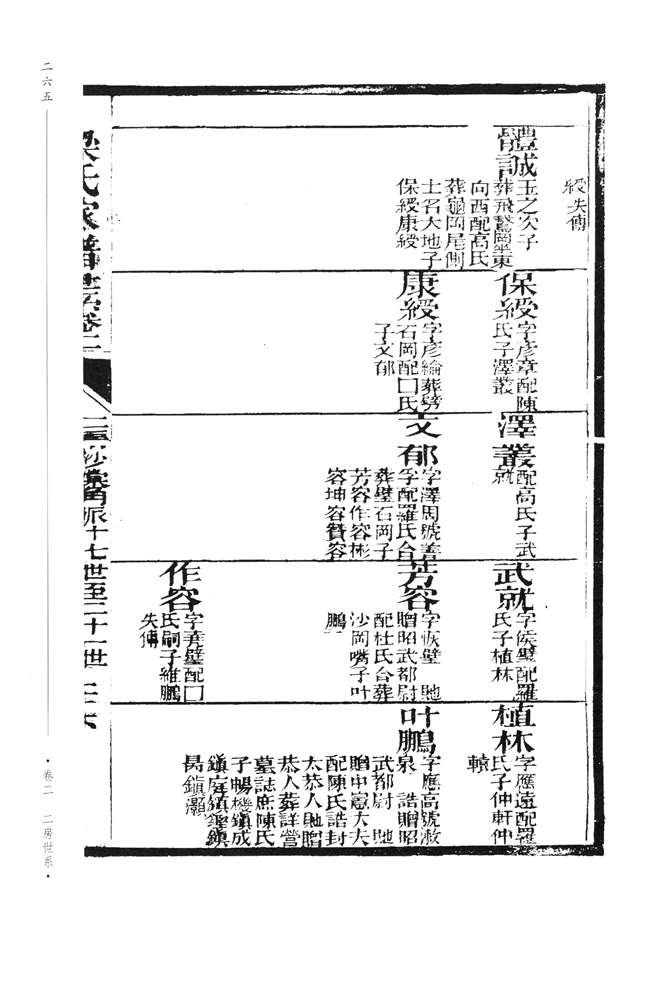 二六五
梁氏家譜
卷二
派十七世至二十一世
綬失傳
體誠
玉之次子
向西配高氏
葬龜岡尾側
土名大地子
保綬康綬
保綬
字彥章配陳
氏子澤叢
康綬
字彥綸葬劈
石岡配囗氏
子文郁
澤叢
配高氏子武
就
文郁
字澤周號善
孚配羅氏合
葬璧石岡子
芳容作容彬
容坤容贊容
武就
字侯璧配羅
氏子植林
芳容
字恢璧 貤
贈昭武都尉
配杜氏合葬
沙岡嘴子叶
鵬
作容
字弄璧配囗
氏嗣子維鵬
失傳
植林
字應遠配羅
氏子仲軒仲
轅
叶鵬
字應高號漱
泉 誥贈昭
武都尉 貤
贈中憲大夫
配陳氏誥封
太恭人貤贈
恭人葬詳塋
墓誌庶陳氏
子暢機鎮成
昜鎮灝
卷二 二房世系